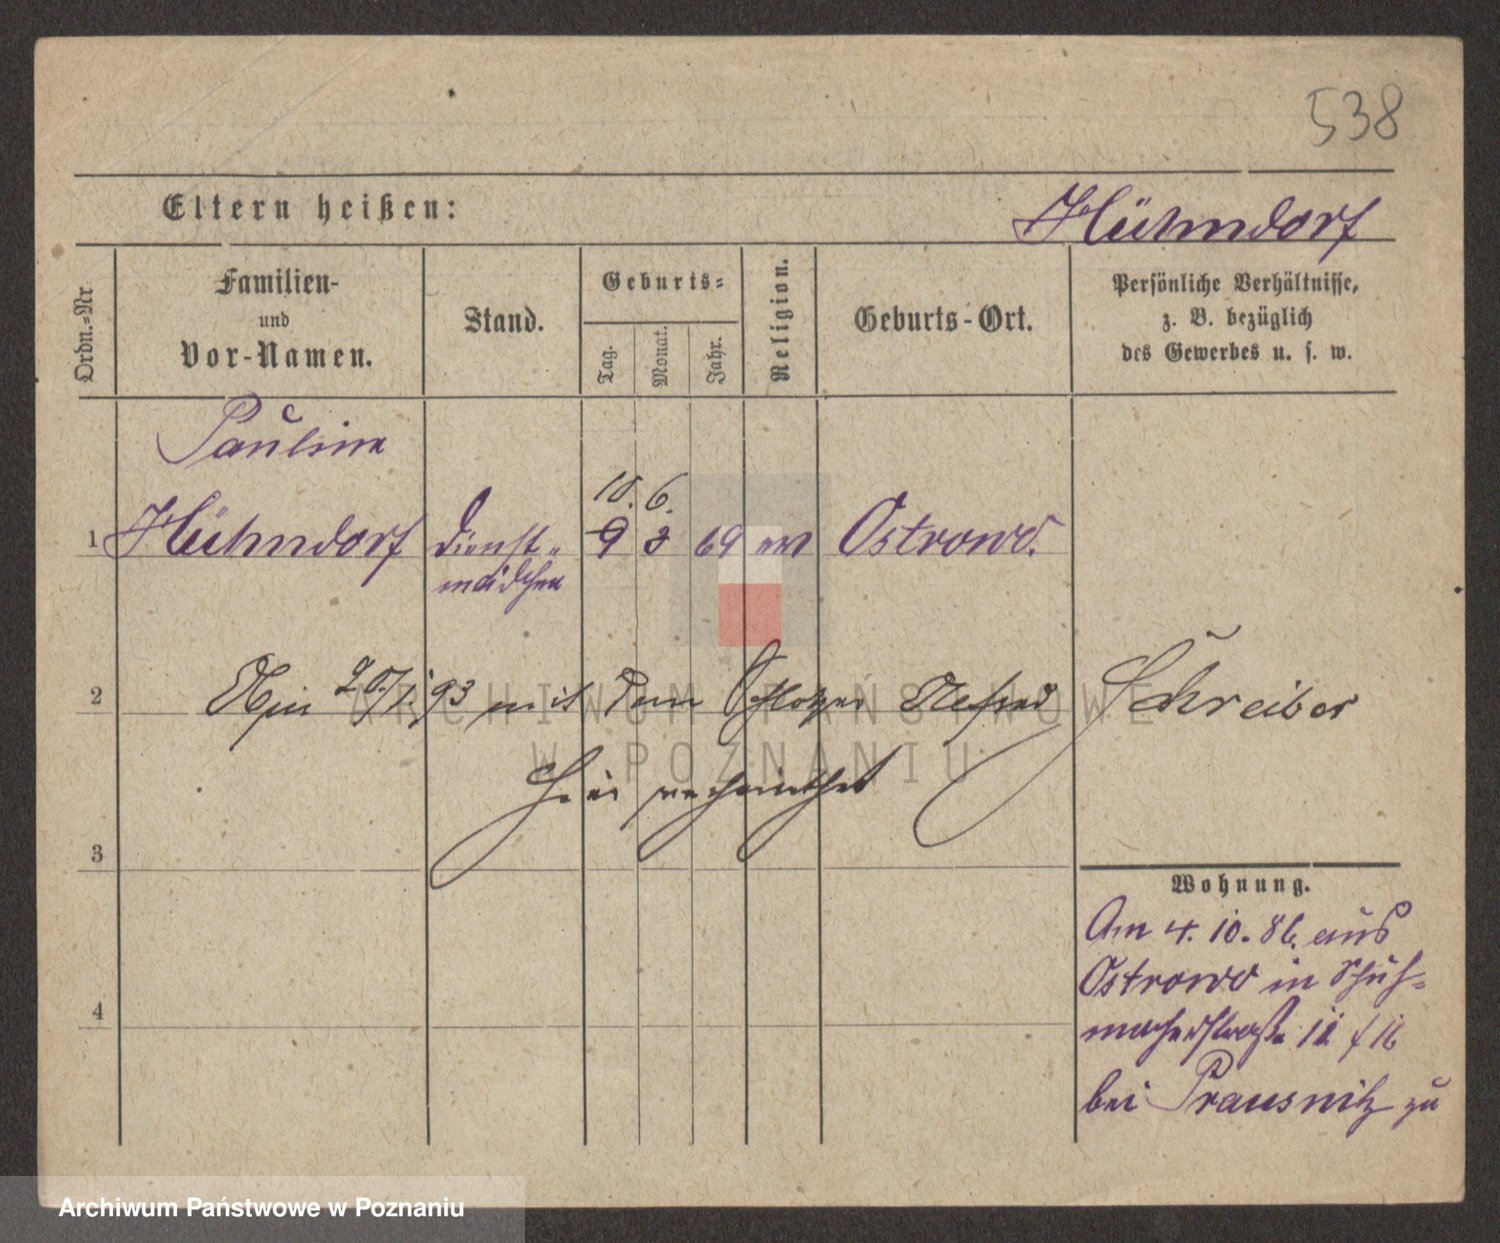 538
Eltern heißen:
Hühndorf
Ordn.-Nr
Familien-
und
Vor-Namen.
Stand.
Geburts-
Tag.
Monat.
Jahr.
Religion.
Geburts-Ort.
Persönliche Verhältnisse,
z. B. bezüglich
des Gewerbes u. s. w.
Pauline
10. 6.
1 Hühndorf Dienst- 9 3 69 ev Ostrowo.
mädchen
2 20/1. 93 mit dem Alfred Schreiber
hier verheirathet
3
Wohnung.
Am 4. 10. 86. aus
Ostrowo in Schuh-
macherstraße 11
4
bei Prausnitz zu
ARCHIWUM PAŃSTWOWE
W POZNANIU
Archiwum Państwowe w Poznaniu